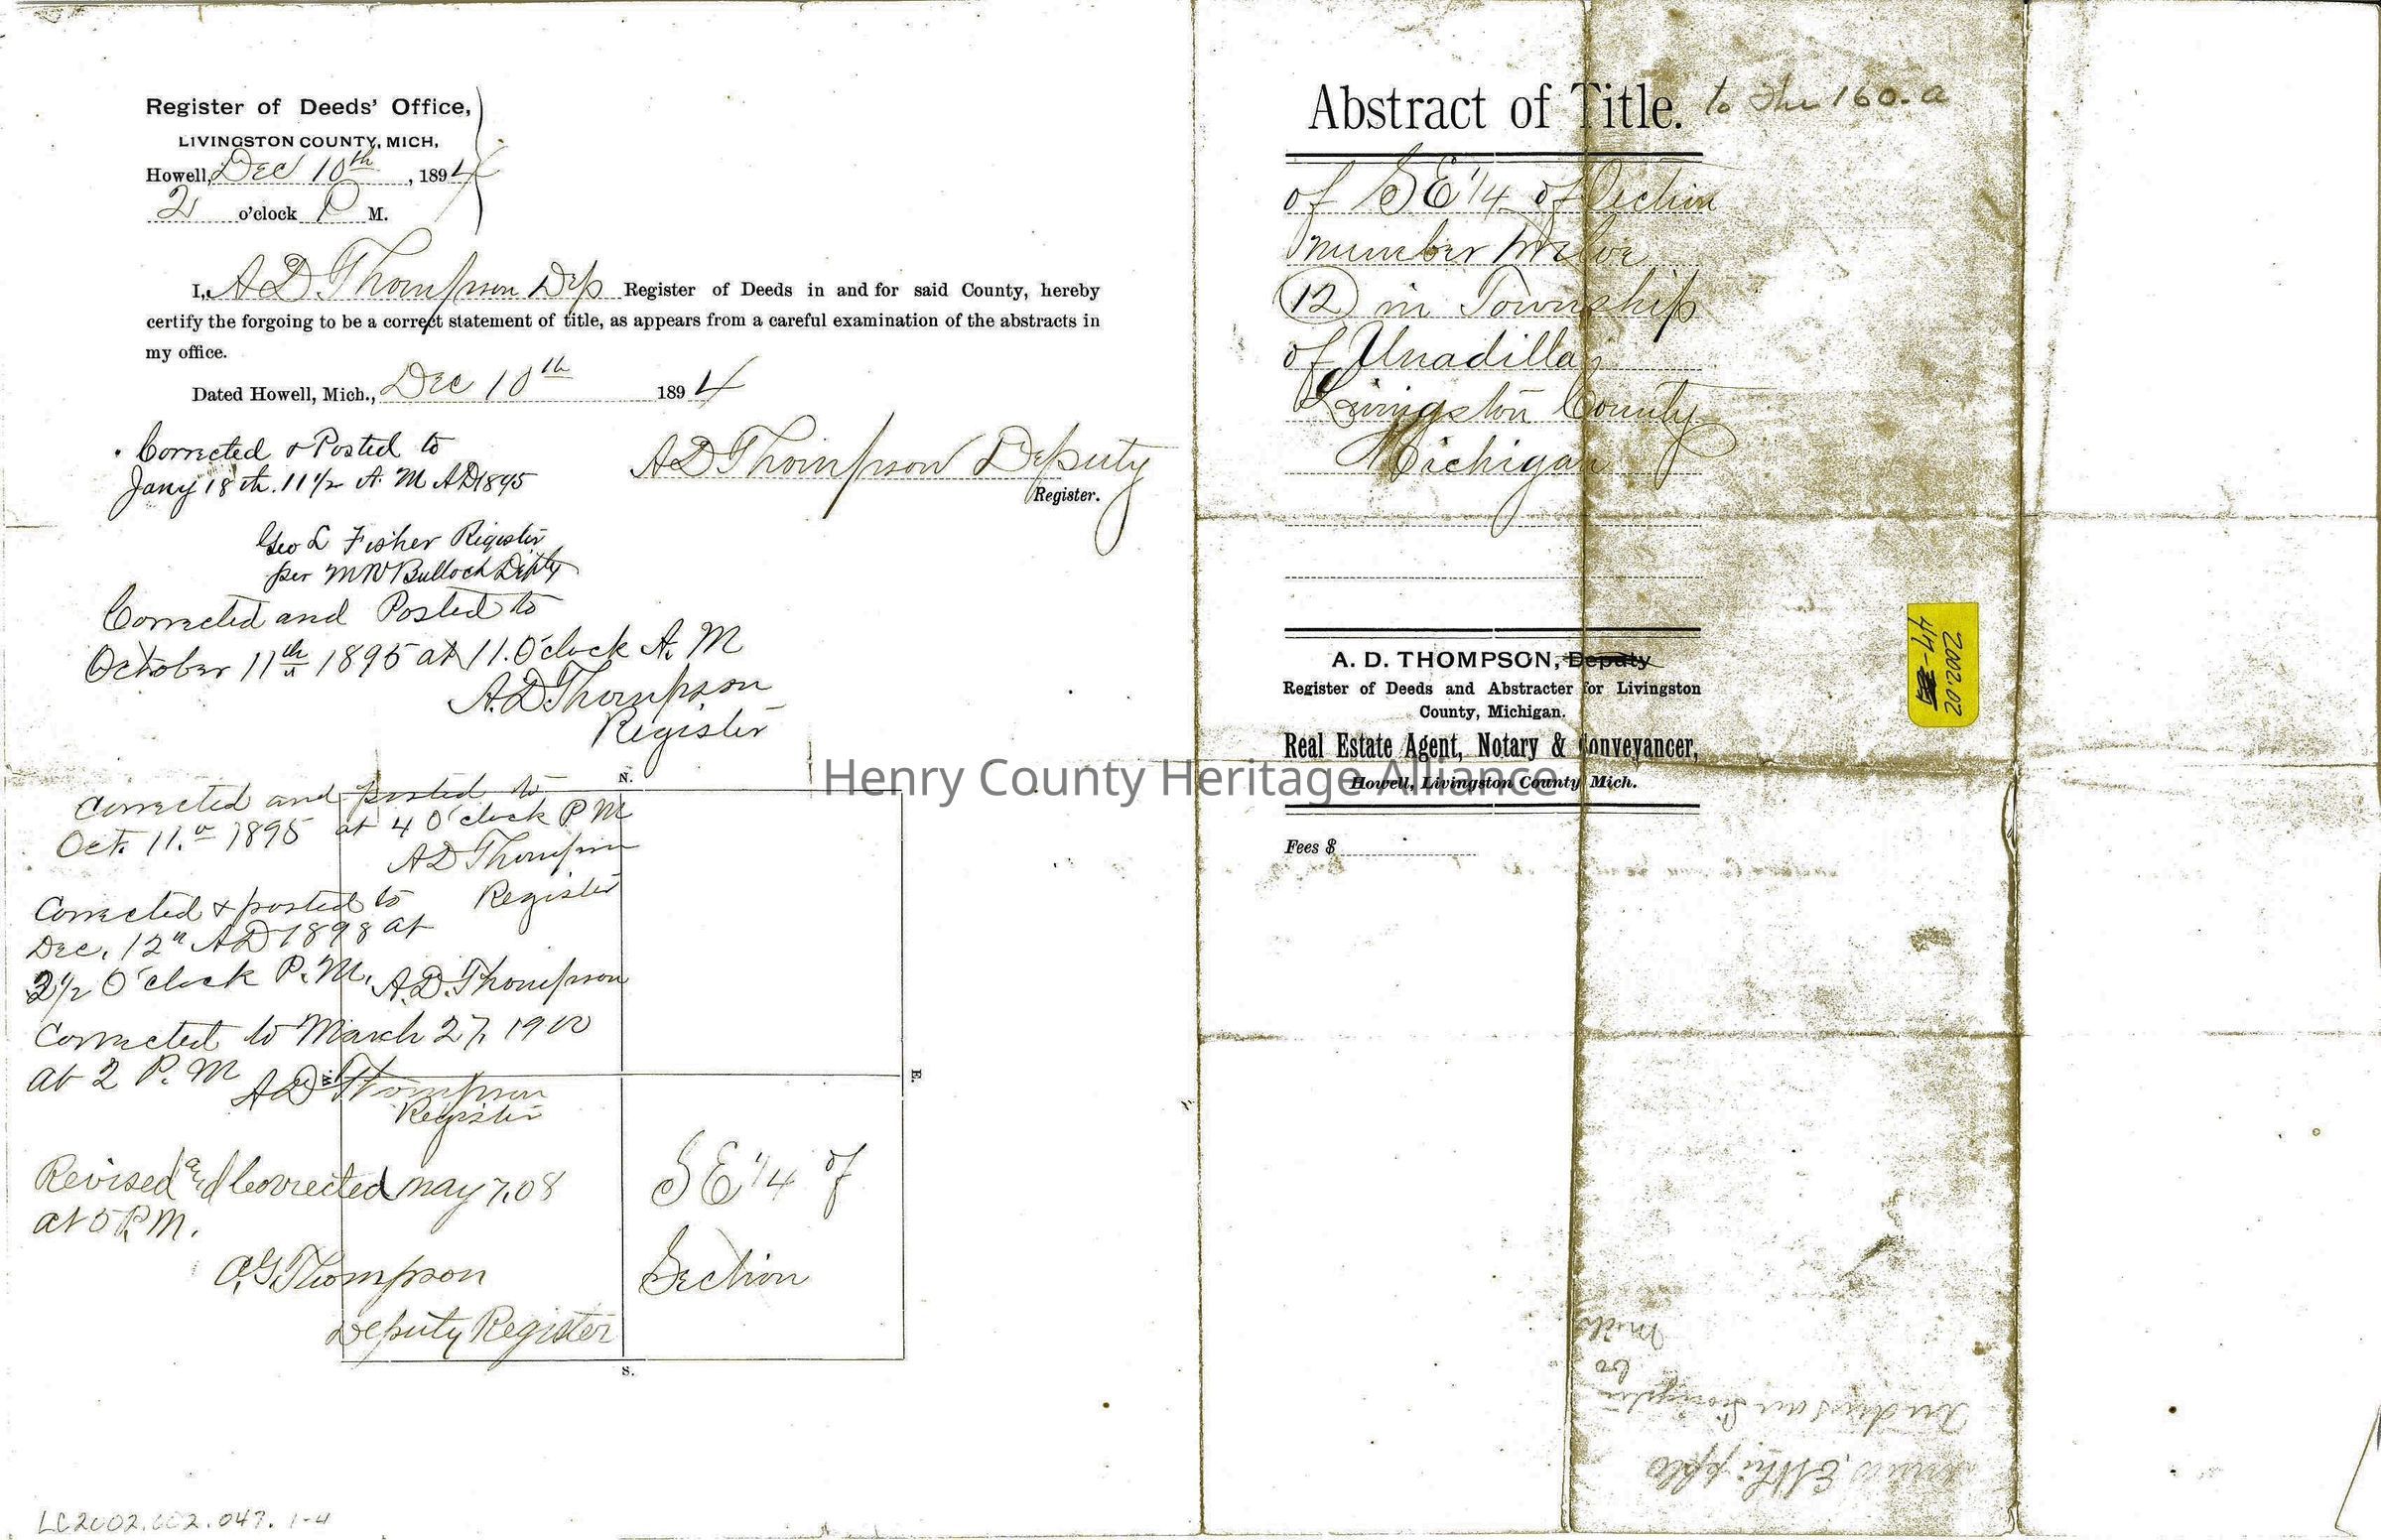 Register of Deeds' Office,
LIVINGSTON COUNTY, MICH,
Howell, Dec 10th, 1894
2 o'clock P M.
I, A D Thompson Dep Register of Deeds in and for said County, hereby
certify the forgoing to be a correct statement of title, as appears from a careful examination of the abstracts in
my office.
Dated Howell, Mich., Dec 10th 1894
A D Thompson Deputy
Register.
Corrected & Posted to
Jany 18th. 11 1/2 A. M AD 1895
Geo L Fisher Register
per M W Bulloch Depty
Corrected and Posted to
October 11th 1895 at 11. O'clock A. M
A. D Thompson
Register
Corrected and posted to
Oct. 11. 1895 at 4 O'clock P M
A D Thompson
Register
Corrected & posted to
Dec. 12" AD 1898 at
2 1/2 O'clock P. M. A. D. Thompson
Corrected to March 27, 1900
at 2 P. M
A D Thompson
Register
Revised and Corrected may 7, 08
at 5 P. M.
Thompson
Deputy Register
N.
W.
E.
S.
SE 1/4 of
Section
LC2002.002.047.1-4
Abstract of Title. to the 160. a
of SE 1/4 of Section
number twelve
12 in Township
of Unadilla,
Livingston County
Michigan
A. D. THOMPSON, Deputy
Register of Deeds and Abstracter for Livingston
County, Michigan.
Real Estate Agent, Notary & Conveyancer,
Howell, Livingston County Mich.
Fees $
2002.02
47-
Henry County Heritage Alliance